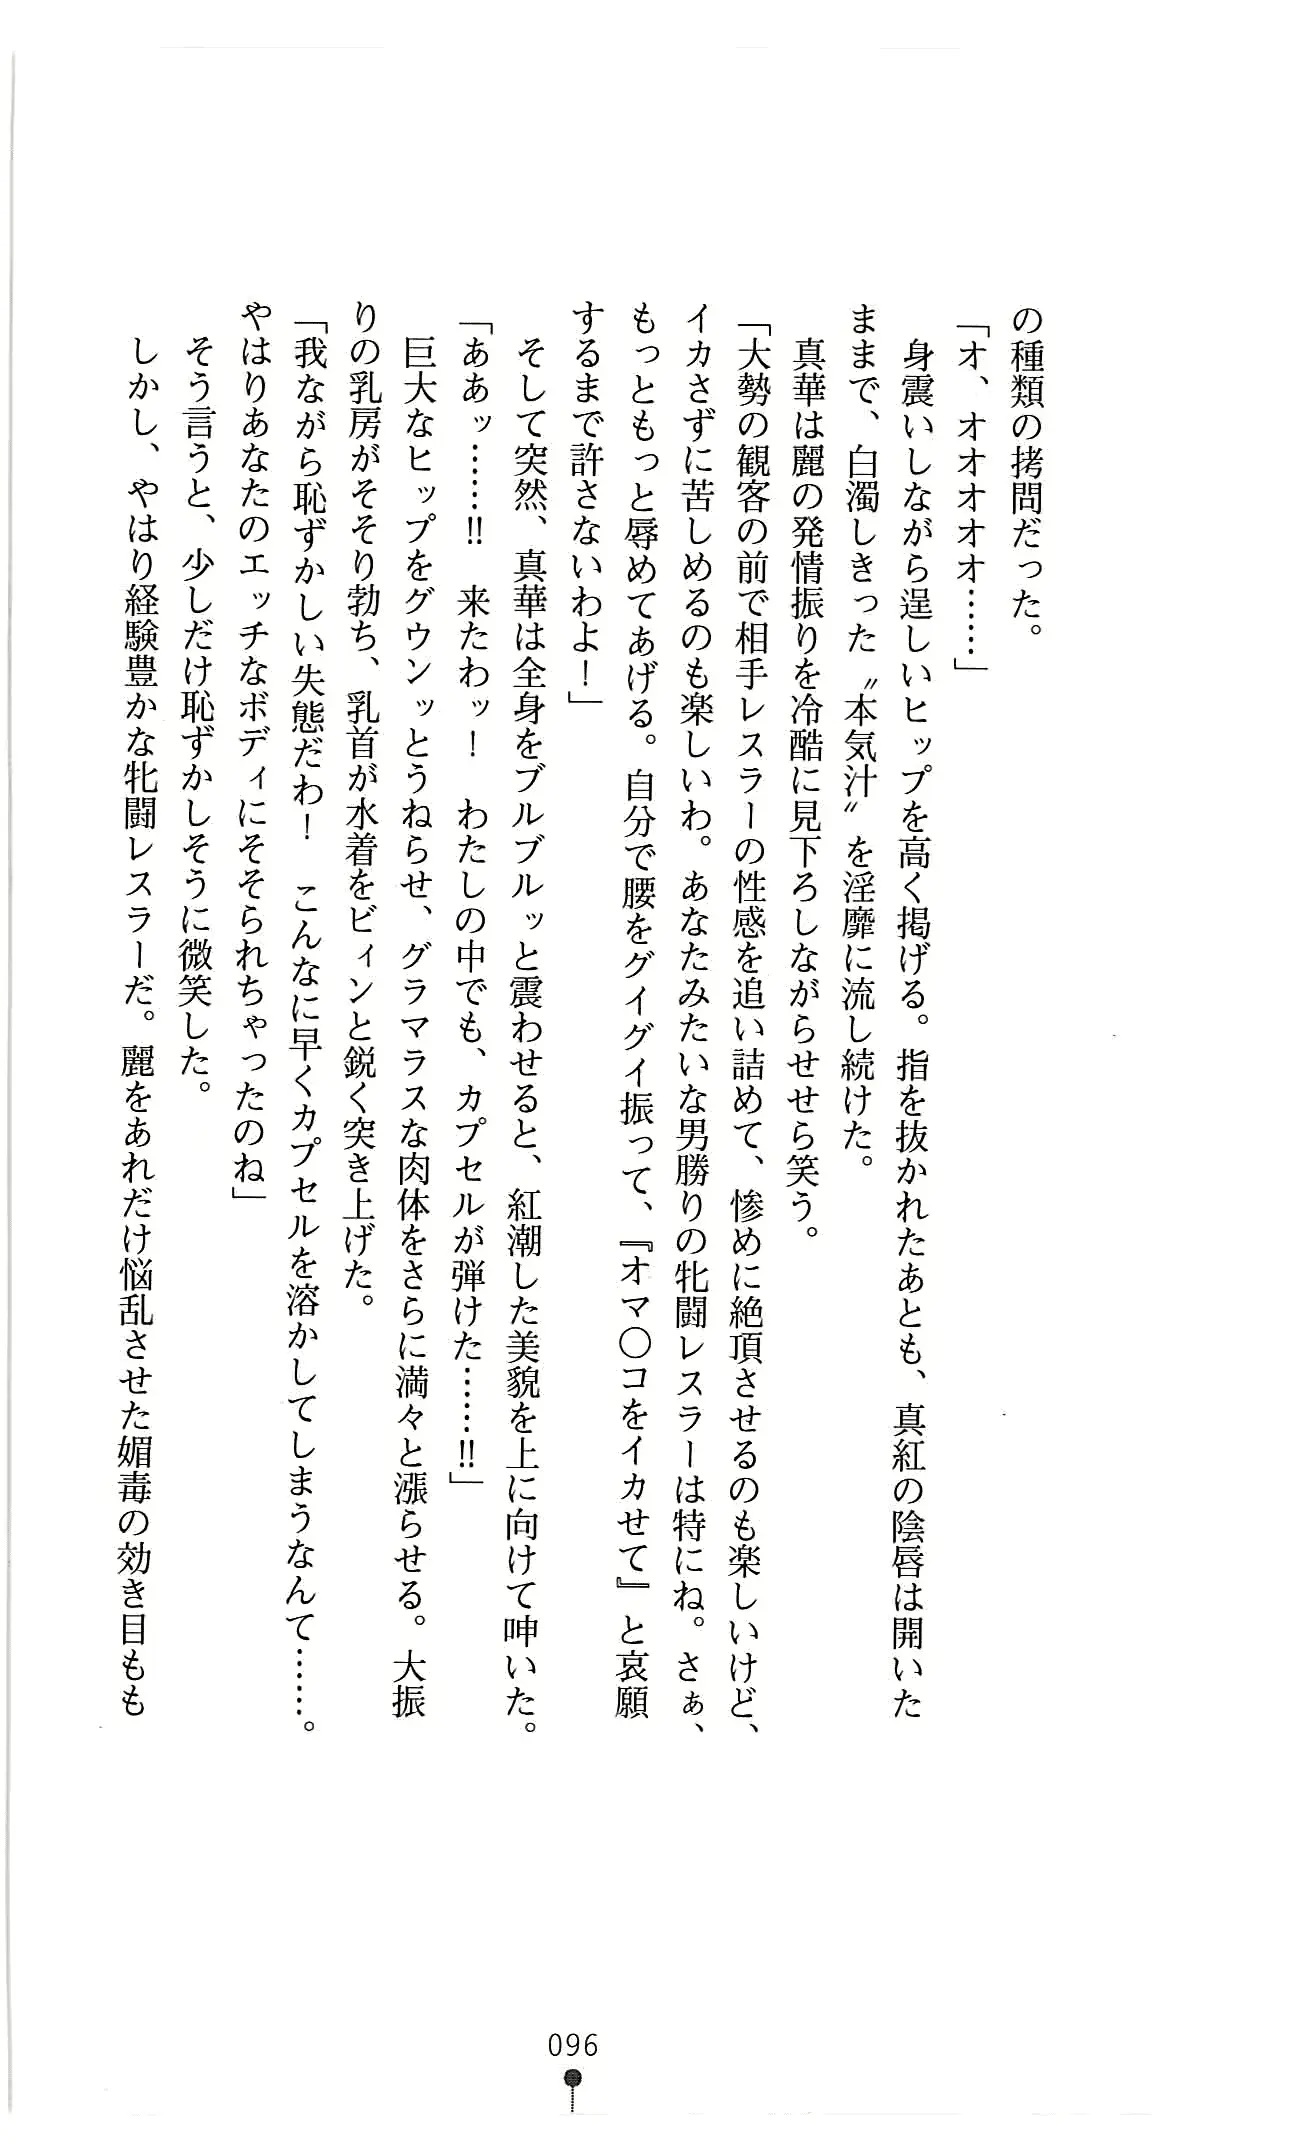 の種類の拷問だった。
「オ、オオオオオ……」
身震いしながら逞しいヒップを高く掲げる。指を抜かれたあとも、真紅の陰唇は開いた
ままで、白濁しきった〝本気汁〟を淫靡に流し続けた。
真華は麗の発情振りを冷酷に見下ろしながらせせら笑う。
「大勢の観客の前で相手レスラーの性感を追い詰めて、惨めに絶頂させるのも楽しいけど、
イカさずに苦しめるのも楽しいわ。あなたみたいな男勝りの牝闘レスラーは特にね。さぁ、
もっともっと辱めてあげる。自分で腰をグイグイ振って、『オマ〇コをイカせて』と哀願
するまで許さないわよ！」
そして突然、真華は全身をブルブルッと震わせると、紅潮した美貌を上に向けて呻いた。
「ああッ……!!　来たわッ！　わたしの中でも、カプセルが弾けた……!!」
巨大なヒップをグウンッとうねらせ、グラマラスな肉体をさらに満々と漲らせる。大振
りの乳房がそそり勃ち、乳首が水着をビィンと鋭く突き上げた。
「我ながら恥ずかしい失態だわ！　こんなに早くカプセルを溶かしてしまうなんて……。
やはりあなたのエッチなボディにそそられちゃったのね」
そう言うと、少しだけ恥ずかしそうに微笑した。
しかし、やはり経験豊かな牝闘レスラーだ。麗をあれだけ悩乱させた媚毒の効き目もも
096